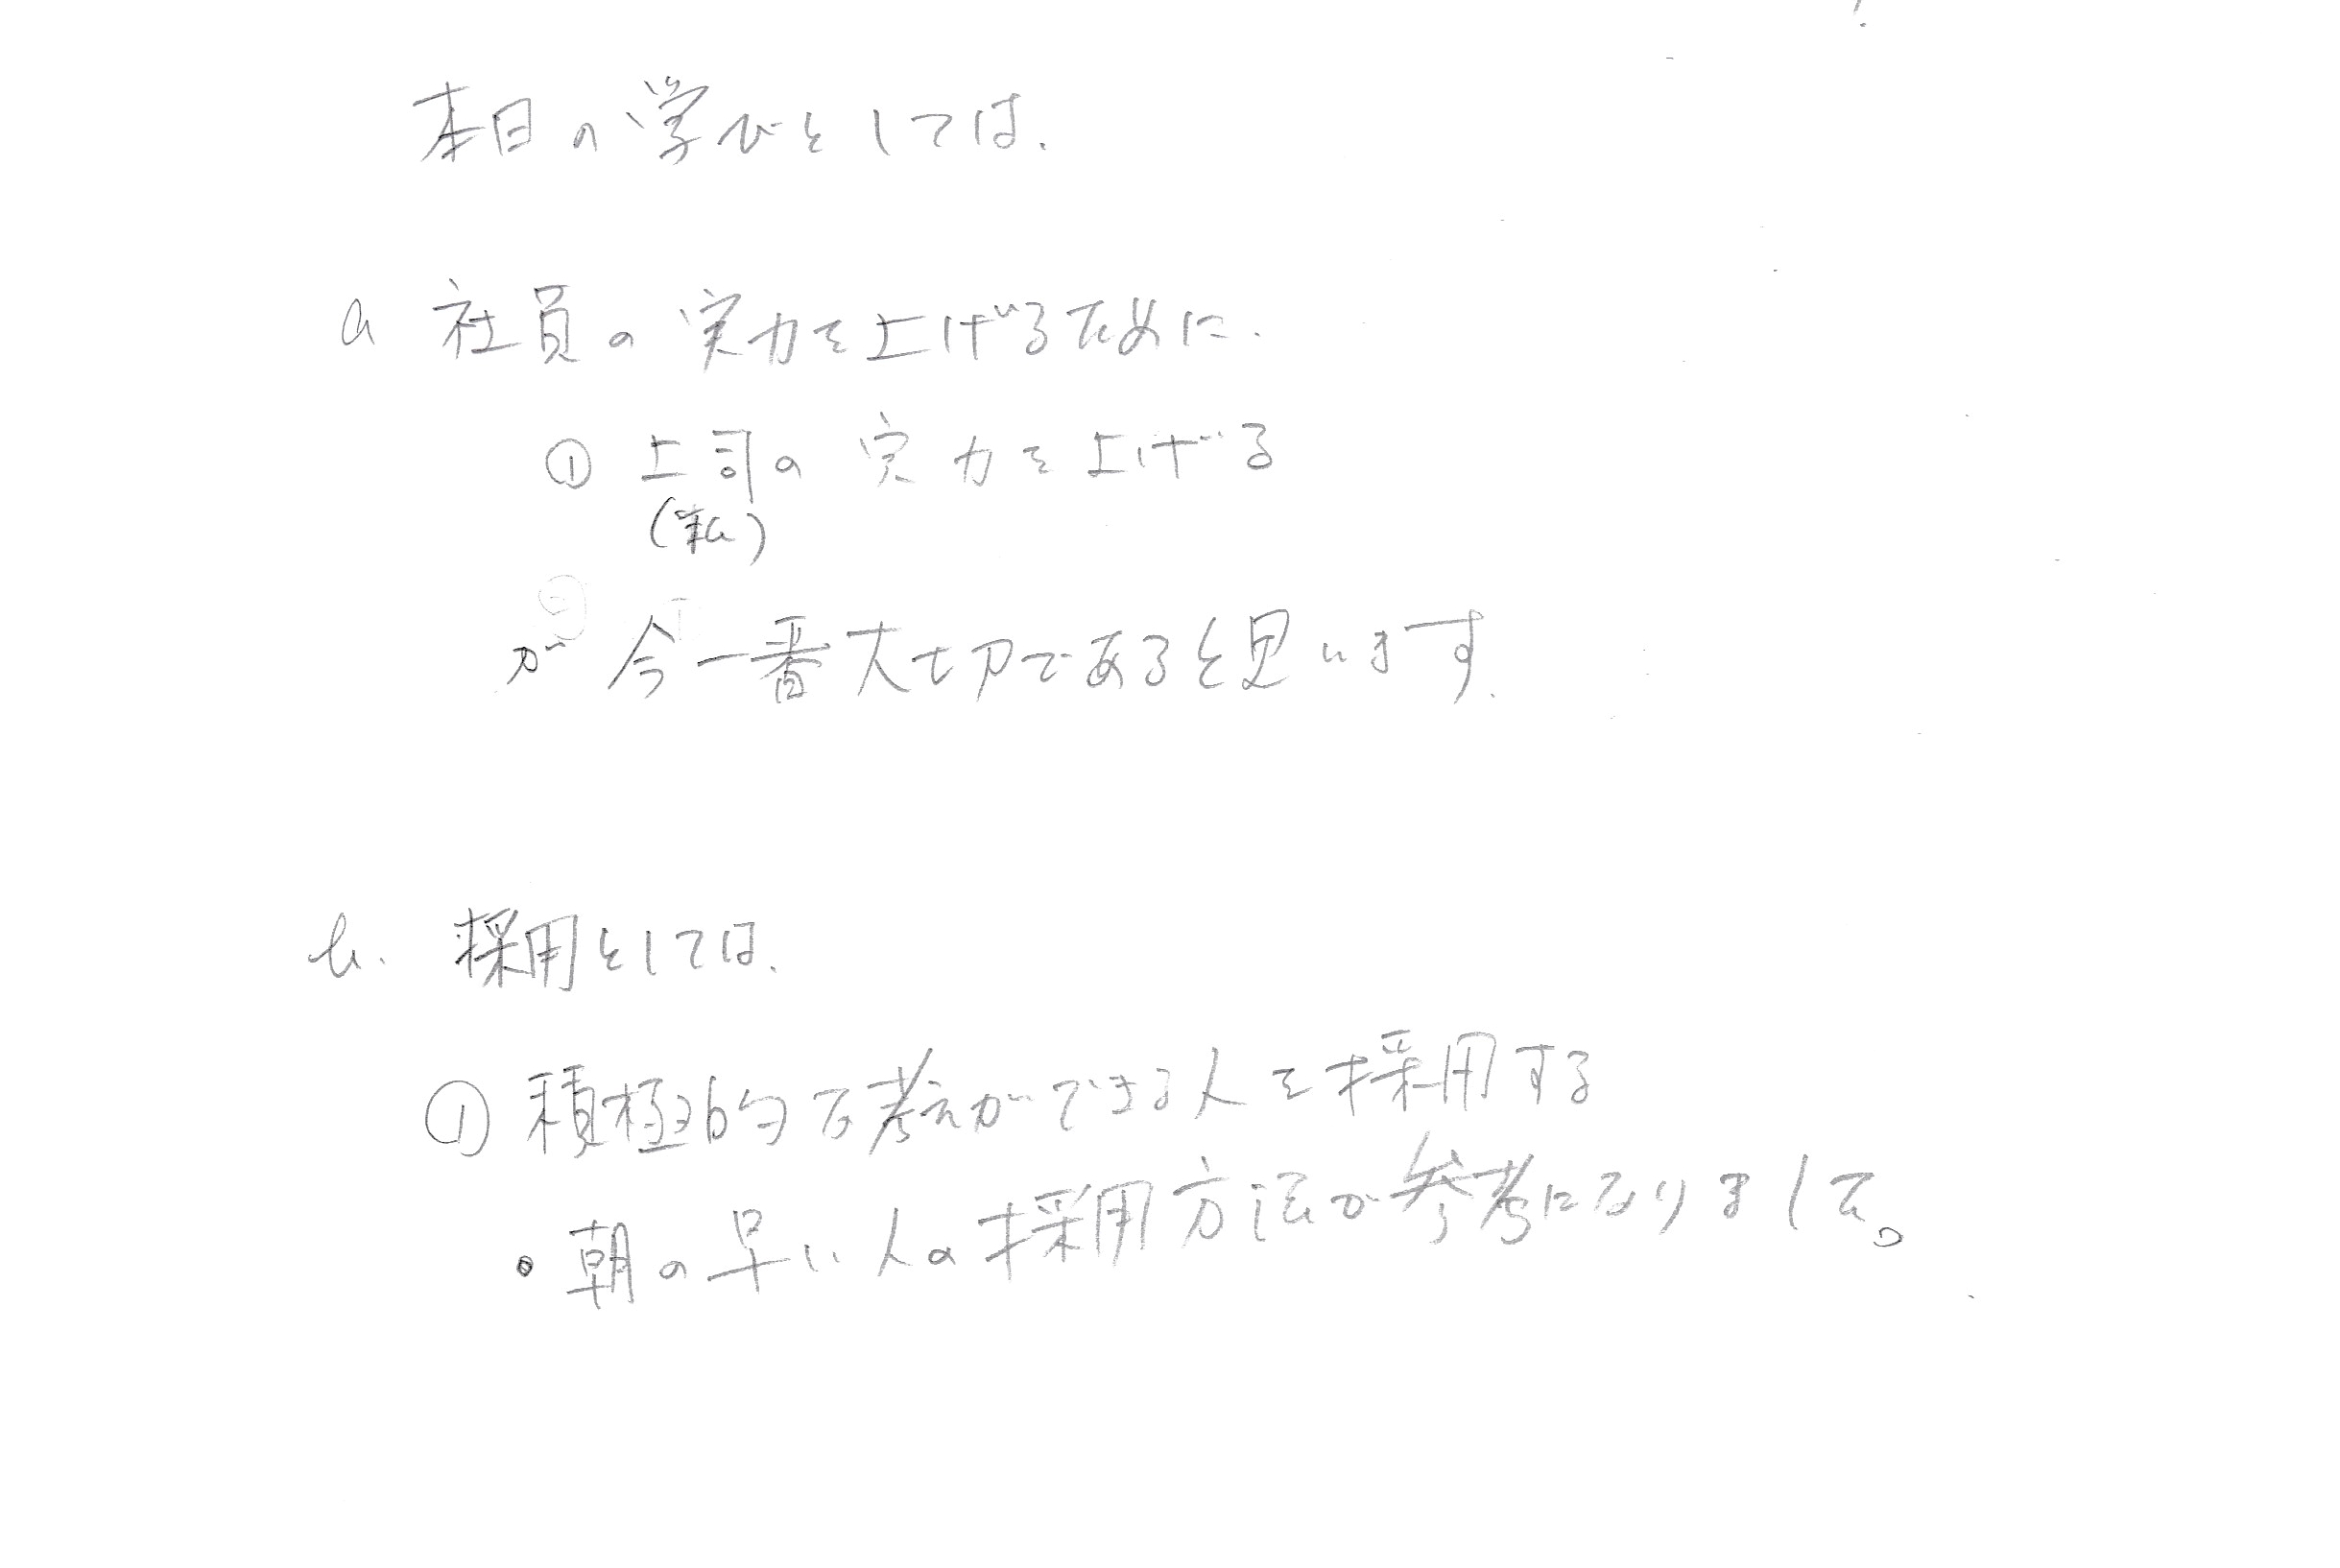 本日の学びとしては、
a 社員の実力を上げるために、
① 上司の実力を上げる
(私)
が 今一番大切であると思います。
b. 採用としては、
① 積極的な考えができる人を採用する
・朝の早い人の採用方法が参考になりました。